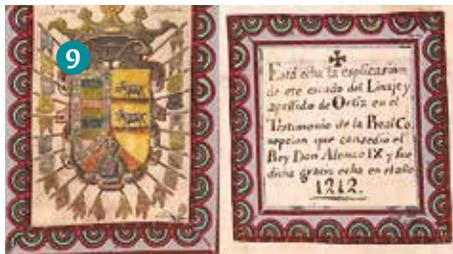 9
Está echa la esplicasion
de ete escudo del Linaje y
apellido de Ortiz en el
Testimonio de la Real Co
nsepcion que consedio el
Rey Don Alonso IX y fue
dicha gracia echa en el año
1212.